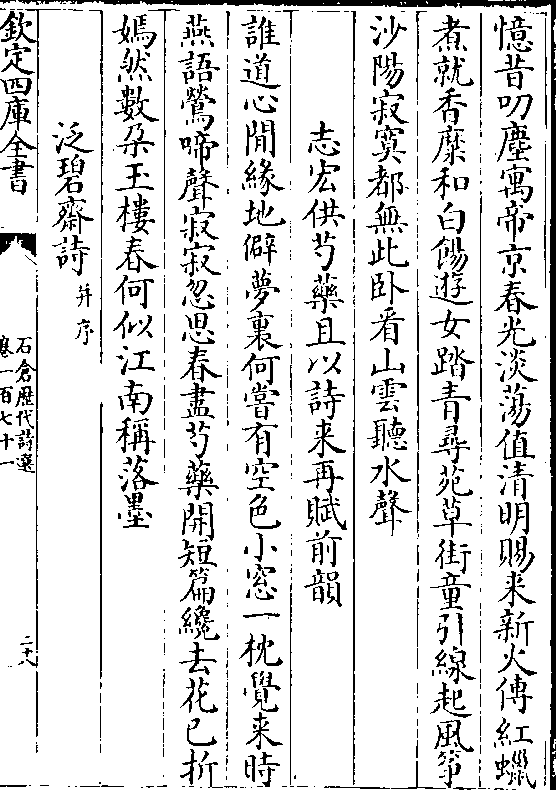 憶昔叨塵寓帝京春光淡蕩值清明賜来新火傳紅蠟
煮就香糜和白餳遊女踏青尋苑草街童引線起風箏
沙陽寂寞都無此卧看山雲聽水聲
志宏供芍藥且以詩来再賦前韻
誰道心閒緣地僻夢裏何嘗有空色小窓一枕覺来時
燕語鶯啼聲寂寂忽思春盡芍藥開短篇纔去花已折
嫣然數朶玉樓春何似江南稱落墨
泛碧齋詩并序
欽定四庫全書
石倉歷代詩選
卷一百七十一
二十八